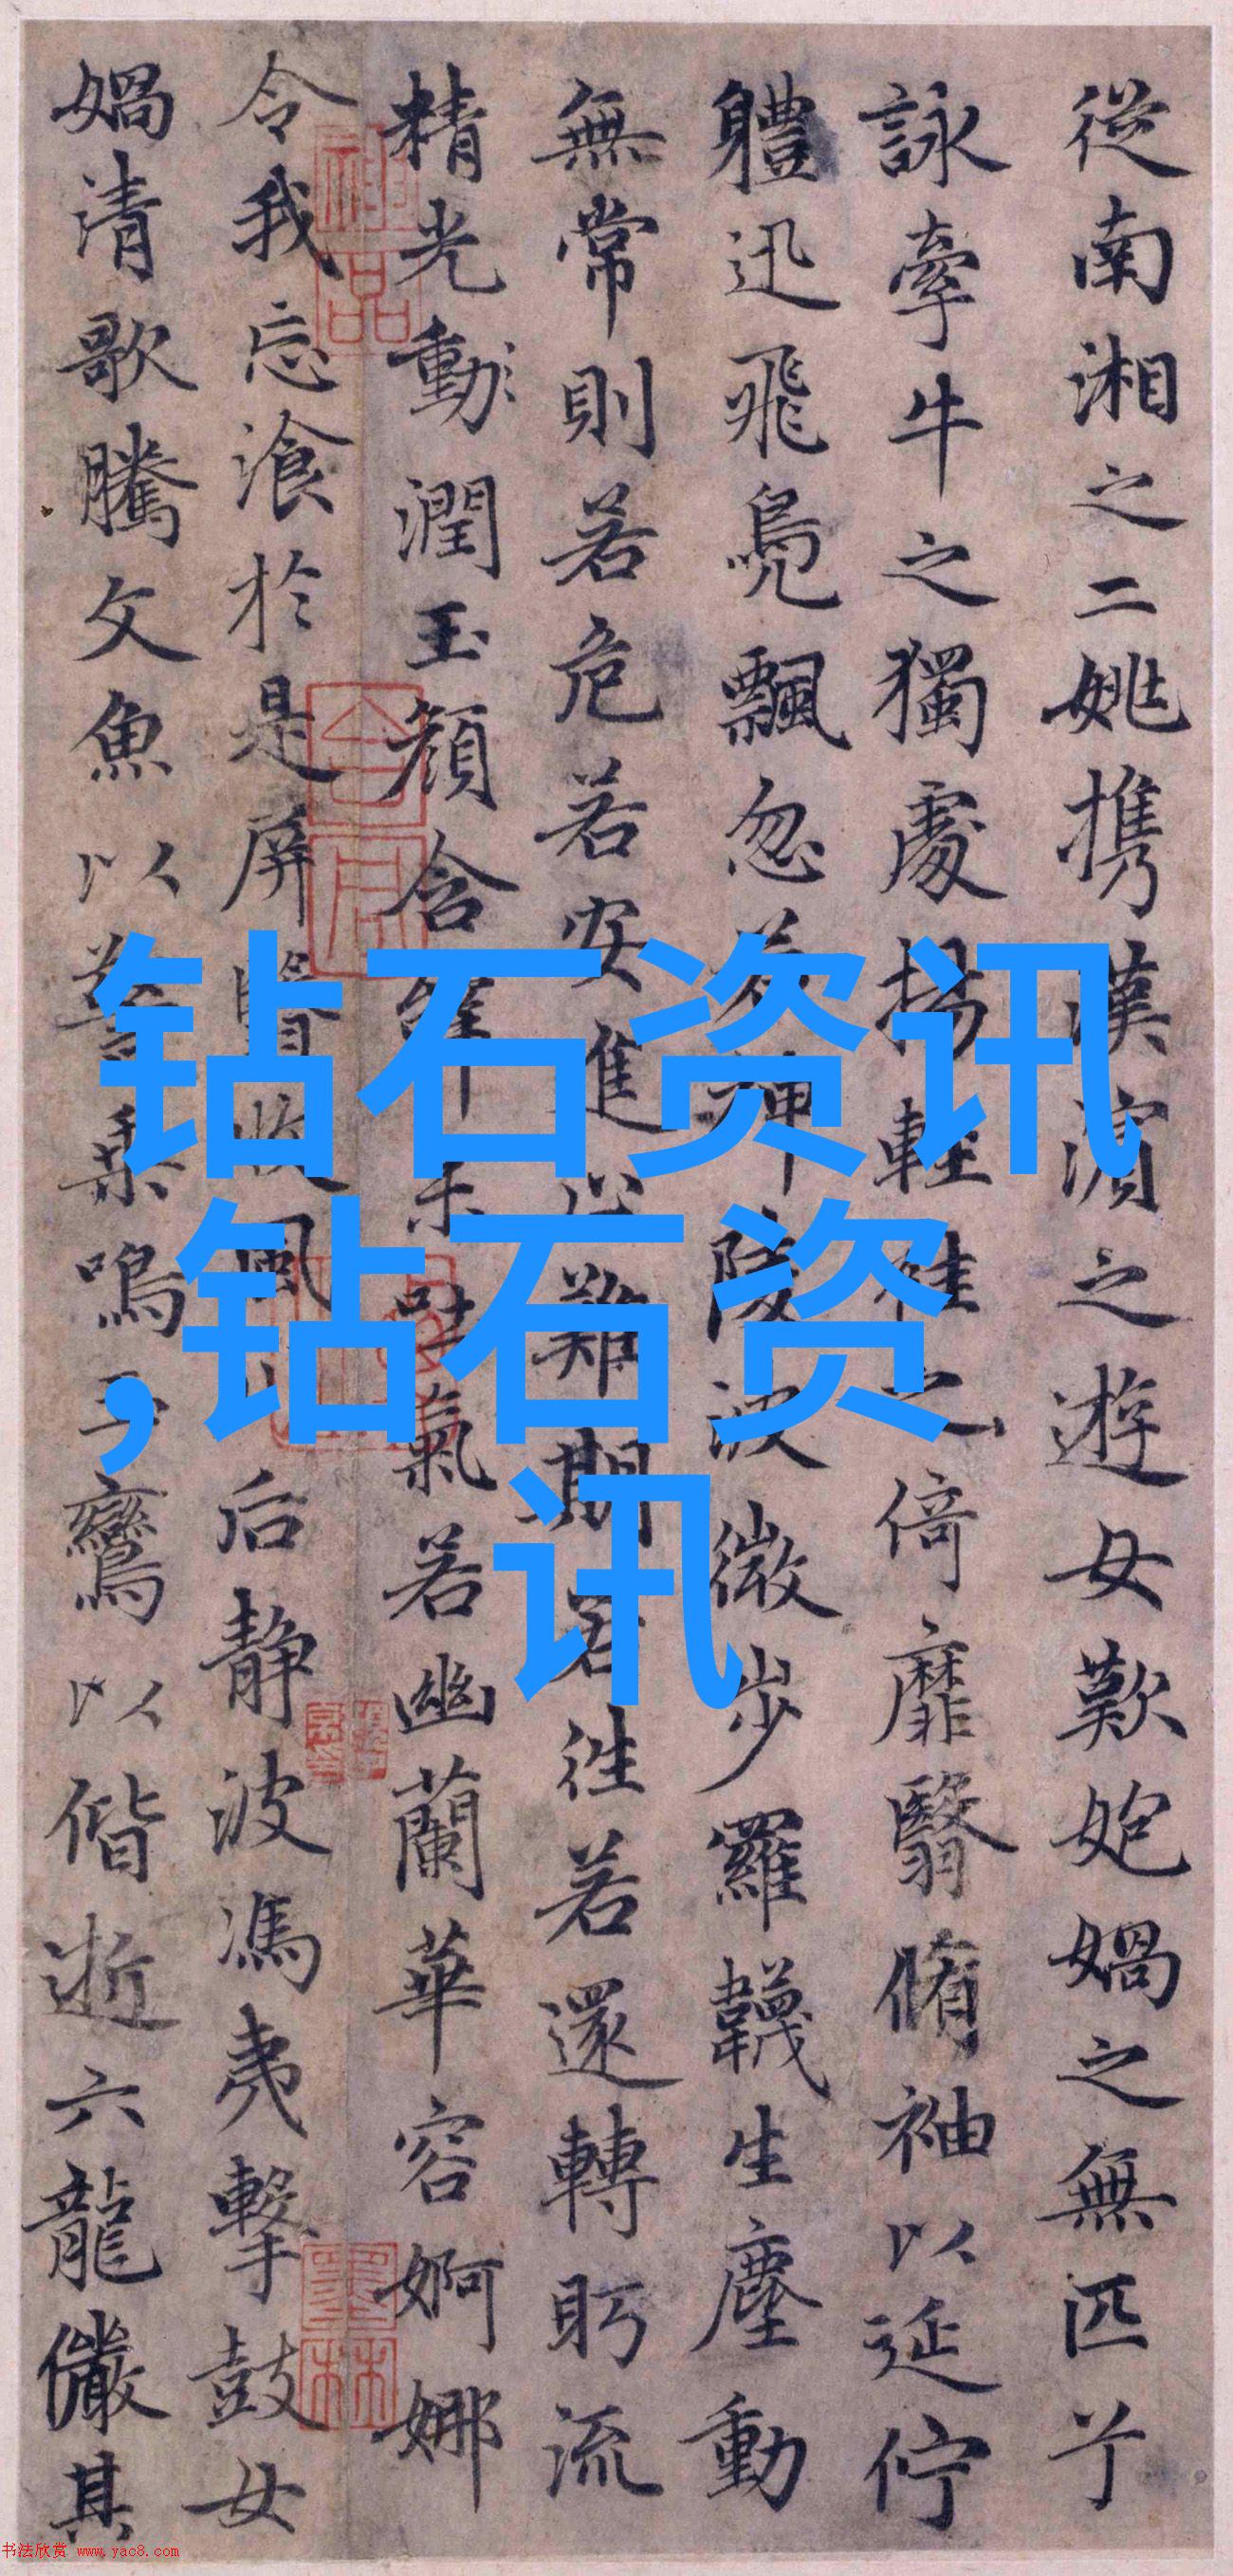 從南湘之二姚携漢濱之遊女歎媧之無匹兮
詠牽牛之獨處揚輕袿之倚靡翳脩袖以延佇
軆迅飛鳧飄忽若神陵波微步羅韈生塵動
無常則若危若安進止難期若往若還轉眄流
精光動潤玉顏含辭未吐氣若幽蘭華容婀娜
令我忘湌於是屏翳收風川后靜波馮夷擊鼓女
媧清歌騰文魚以警乘鳴玉鸞以偕逝六龍儼其
钻石资讯
,钻石资
讯
神品
墨林
书法欣赏 www.yac8.com